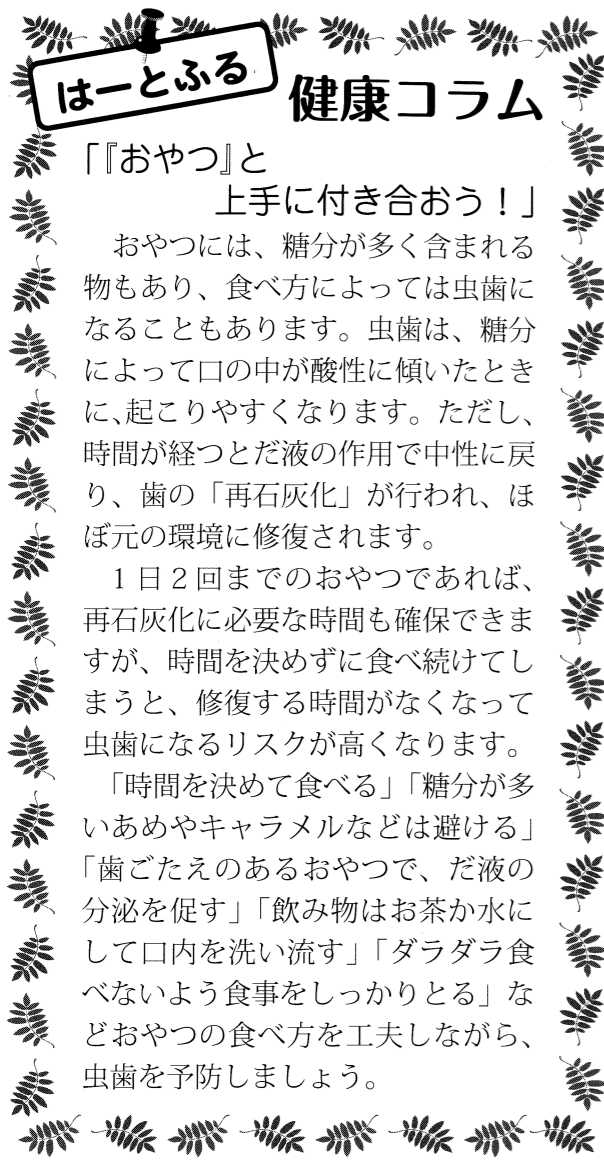 はーとふる
健康コラム
「『おやつ』と
上手に付き合おう！」
おやつには、糖分が多く含まれる
物もあり、食べ方によっては虫歯に
なることもあります。虫歯は、糖分
によって口の中が酸性に傾いたとき
に、起こりやすくなります。ただし、
時間が経つとだ液の作用で中性に戻
り、歯の「再石灰化」が行われ、ほ
ぼ元の環境に修復されます。
１日２回までのおやつであれば、
再石灰化に必要な時間も確保できま
すが、時間を決めずに食べ続けてし
まうと、修復する時間がなくなって
虫歯になるリスクが高くなります。
「時間を決めて食べる」「糖分が多
いあめやキャラメルなどは避ける」
「歯ごたえのあるおやつで、だ液の
分泌を促す」「飲み物はお茶か水に
して口内を洗い流す」「ダラダラ食
べないよう食事をしっかりとる」な
どおやつの食べ方を工夫しながら、
虫歯を予防しましょう。